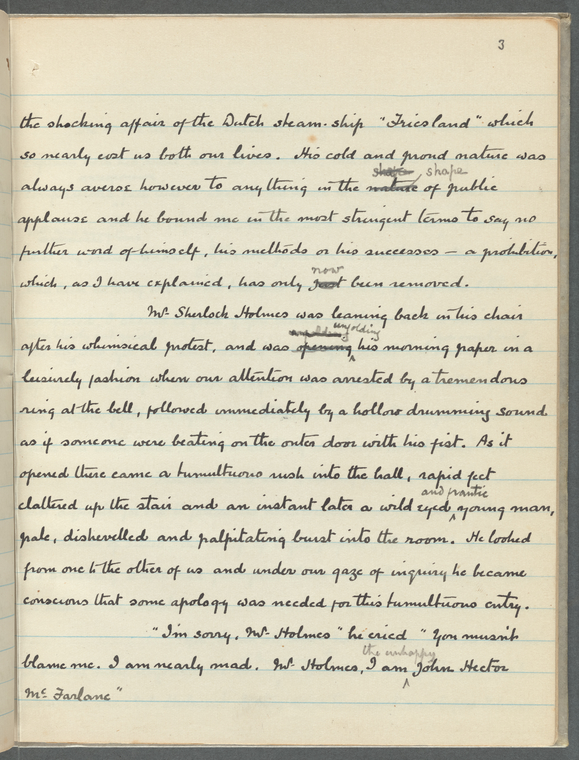 3
the shocking affair of the Dutch steam-ship "Friesland" which
so nearly cost us both our lives. His cold and proud nature was
shape shape
always averse however to anything in the nature of public
applause and he bound me in the most stringent terms to say no
further word of himself, his methods or his successes – a prohibition,
now
which, as I have explained, has only just been removed.
Mr Sherlock Holmes was leaning back in his chair
unfolding unfolding
after his whimsical protest, and was opening his morning paper in a
leisurely fashion when our attention was arrested by a tremendous
ring at the bell, followed immediately by a hollow drumming sound
as if someone were beating on the outer door with his fist. As it
opened there came a tumultuous rush into the hall, rapid feet
and frantic
clattered up the stair and an instant later a wild eyed young man,
pale, dishevelled and palpitating burst into the room. He looked
from one to the other of us and under our gaze of inquiry he became
conscious that some apology was needed for this tumultuous entry.
"I'm sorry, Mr Holmes" he cried "You musn't
the unhappy
blame me. I am nearly mad. Mr Holmes, I am John Hector
McFarlane"